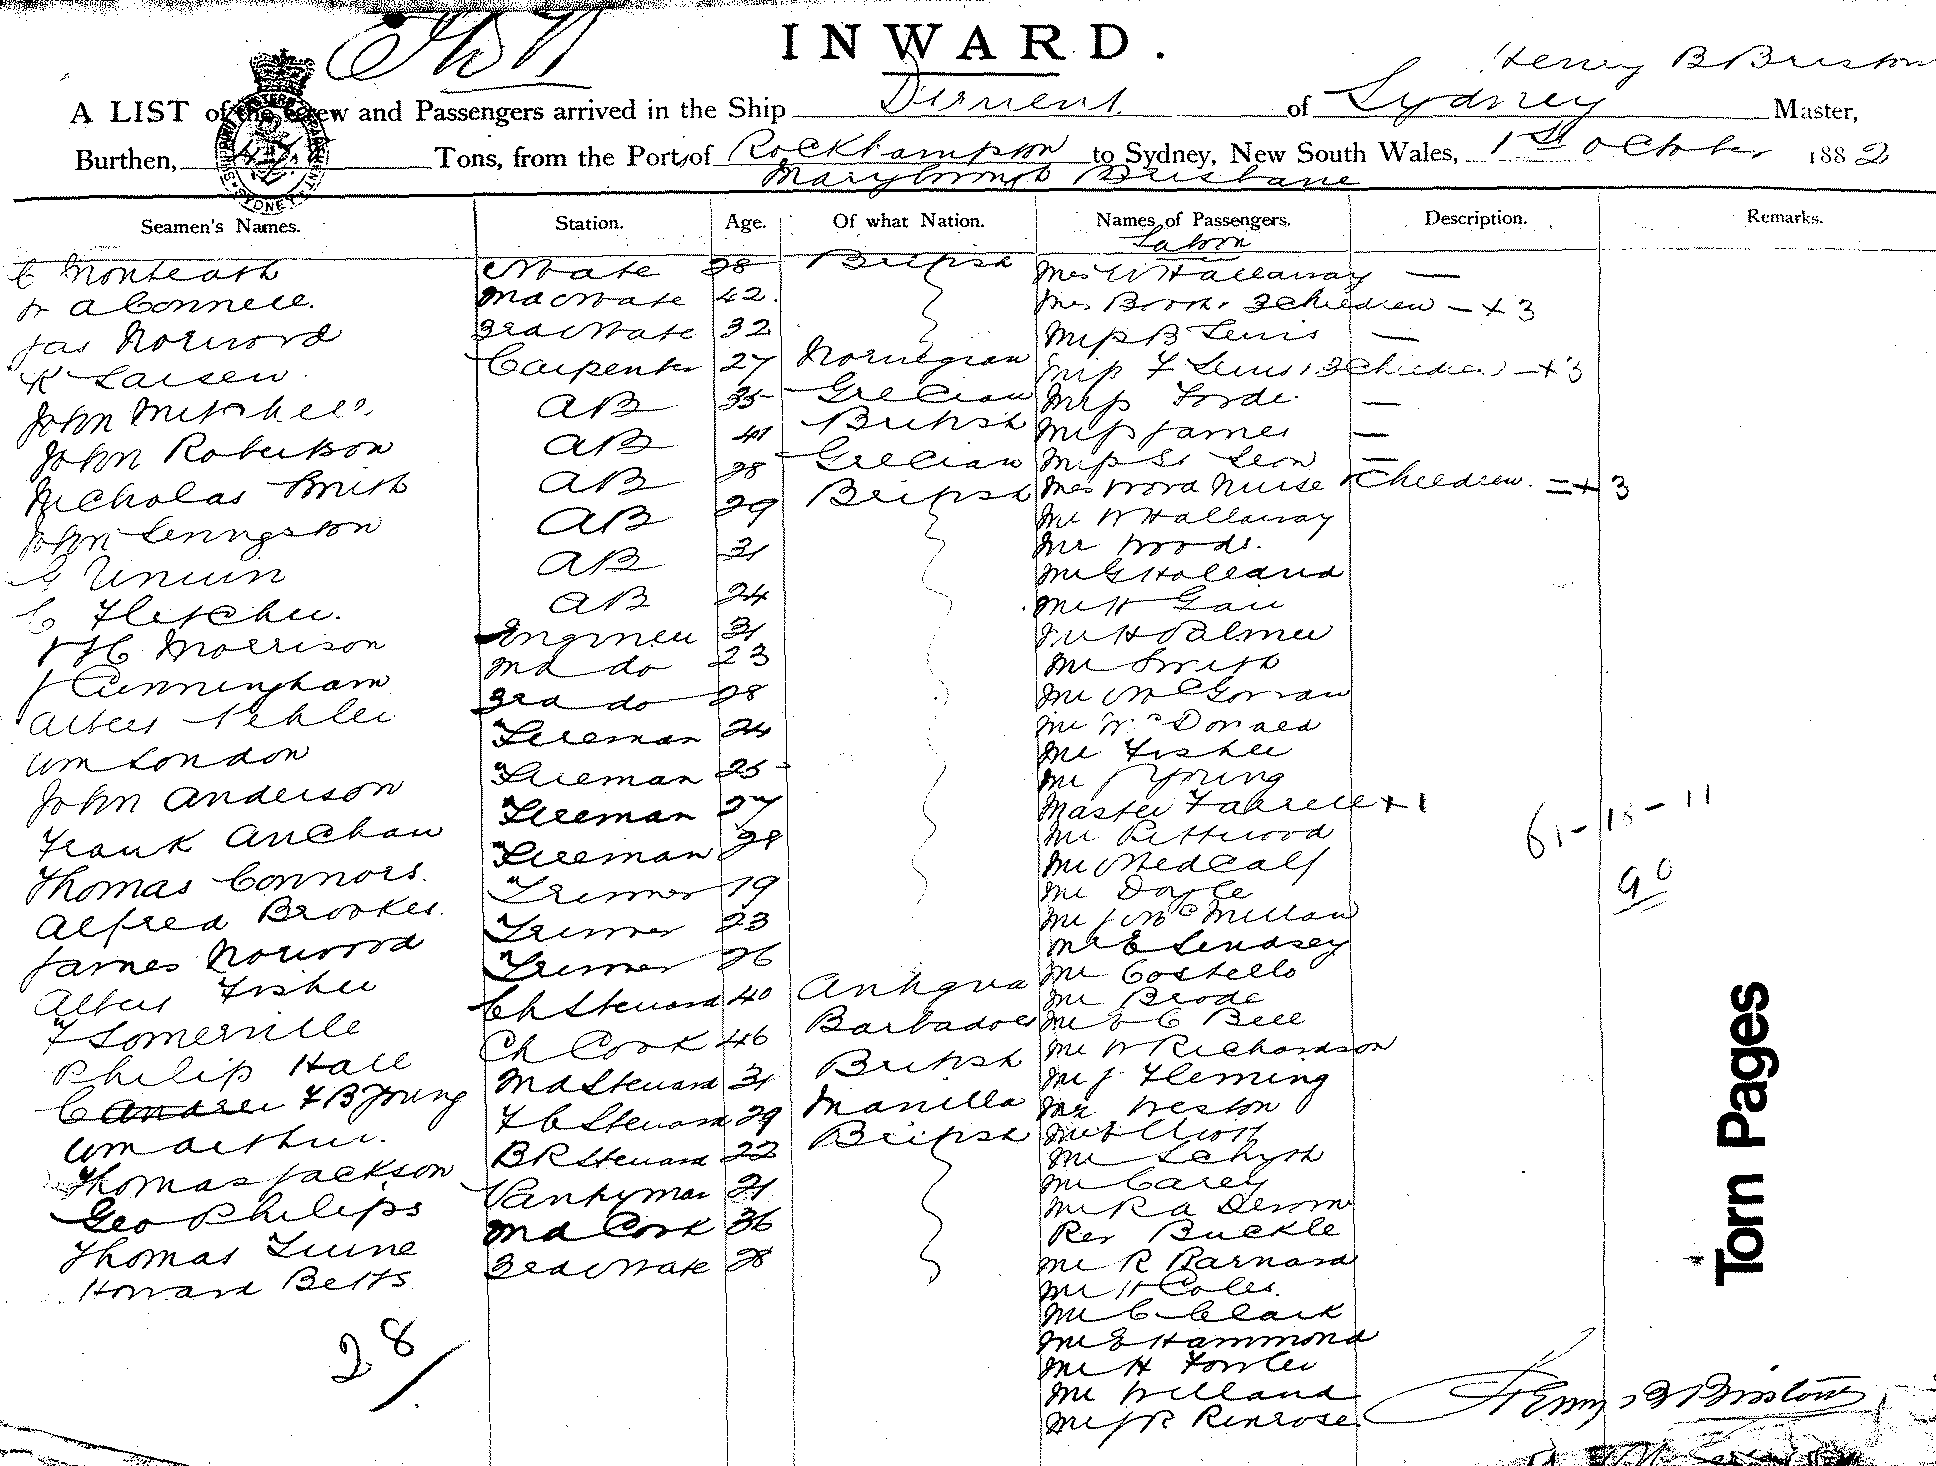 INWARD.
Henry B Briston
A LIST of the Crew and Passengers arrived in the Ship Derwent of Sydney Master,
Burthen, Tons, from the Port of Rockhampton to Sydney, New South Wales, 1st October 1882
Maryborough Brisbane
Seamen's Names. Station. Age. Of what Nation. Names of Passengers. Description. Remarks.
Saloon
C Monteath Mate 28 British Mrs W Hallaway —
Connell. 2nd Mate 42. 3 Children — + 3
Jas Norwood 3rd Mate 32 Miss B Lewis —
K Larsen Carpenter 27 Norwegian Miss F Lewis, 3 Children — + 3
John Mitchell. AB 35 Grecian Miss Forde. —
John Robertson AB 41 British Miss James —
Nicholas AB 28 Grecian Miss St Leon —
John Livingston AB 29 British Nurse Children. = + 3
Mr W Hallaway
G Unwin AB 31 Mr Woods.
C Fletcher. AB 24 Mr G Holland
Morrison Engineer 31 Mr H
J Cunningham 2nd do 23 Mr H Palmer
Albert 3rd do 28 Mr Smith
Wm London Fireman 24 Mr McGowan
John Anderson Fireman 25 Mr McDonald
Frank Fireman 27 Mr Fisher
Thomas Connors. Fireman 28 Mr J Young
Alfred Brookes. Trimmer 19 Master Farrell + 1
James Norwood Trimmer 23 Mr Pettwood
Albert Fisher Trimmer 26 Mr Medcalf
F Somerville Ch Steward 40 Antigua Mr Doyle
Philip Hall Ch Cook 46 Barbadoes Mr J McMillan
F B Young 2nd Steward 31 British Mr E Lindsey
Wm Arthur. F C Steward 29 Manilla Mr Costello
Thomas Jackson BR Steward 22 British Mr Brode
Geo Philips Pantryman 21 Mr E C Bell
Thomas 2nd Cook 36 Mr W Richardson
Howard Betts 3rd Mate 28 Mr J Fleming
Mr Weston
Mr
Mr
Mr Carey
Mr R A
Rev Buckle
Mr R Barnard
Mr H Coles.
Mr C Clark
Mr E Hammond
Mr H Fowler
Mr Welland
Mr J R Penrose.
28
61 - 18 - 11
90
Henry B Briston
Torn Pages